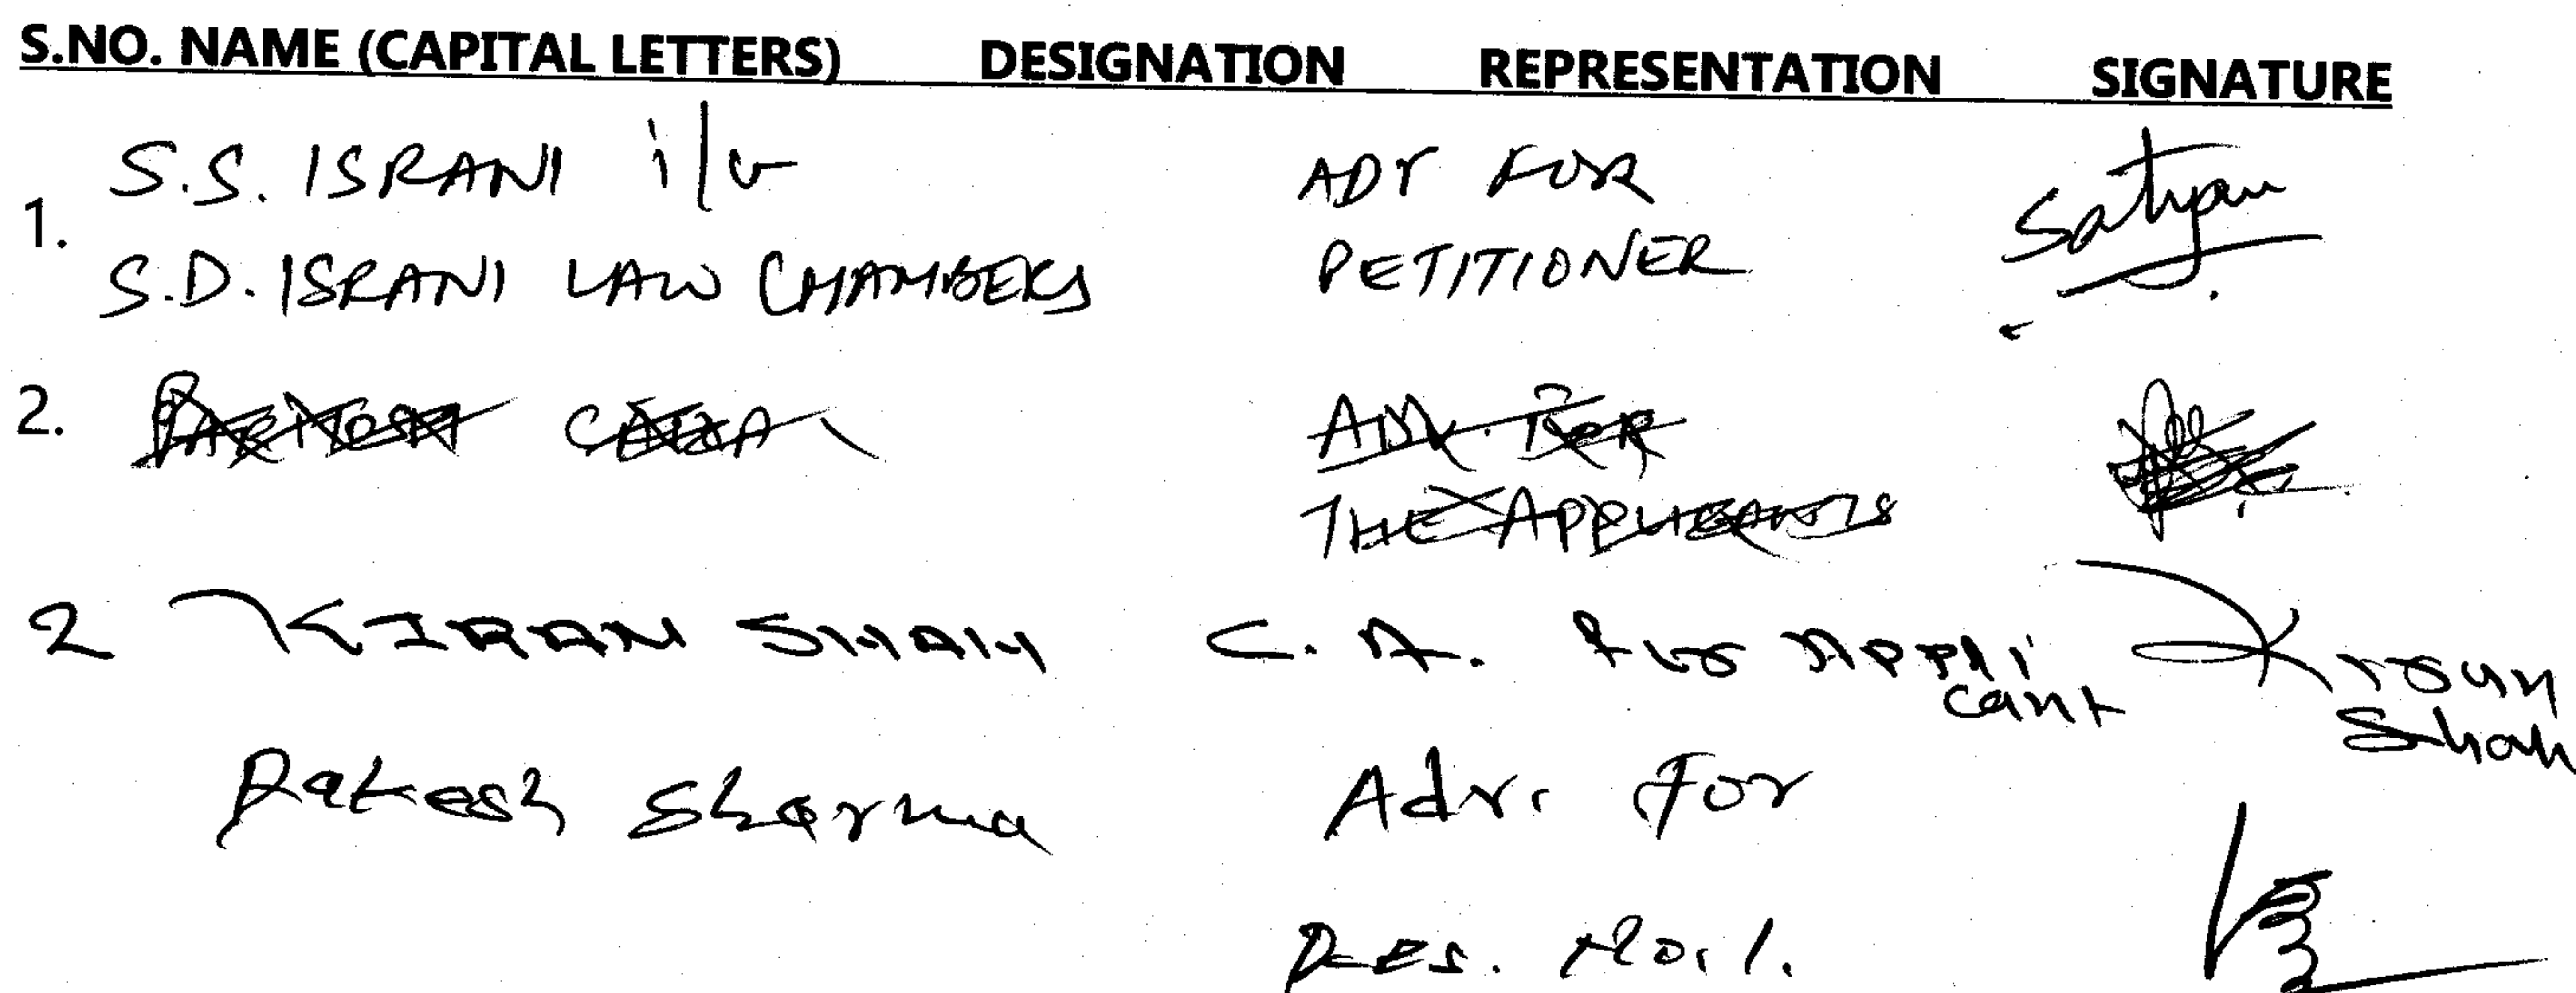 S.NO. NAME (CAPITAL LETTERS) DESIGNATION REPRESENTATION SIGNATURE
S.S. ISRANI i/b ADV FOR
1. Satyan
S.D. ISRANI LAW CHAMBERS PETITIONER
2. ADV. FOR
THE APPLICANTS
2 KIRAN SHAH C.A. for Appli Kiran
cant Shah
Rakesh Sharma Adv. For
Res. No. 1.